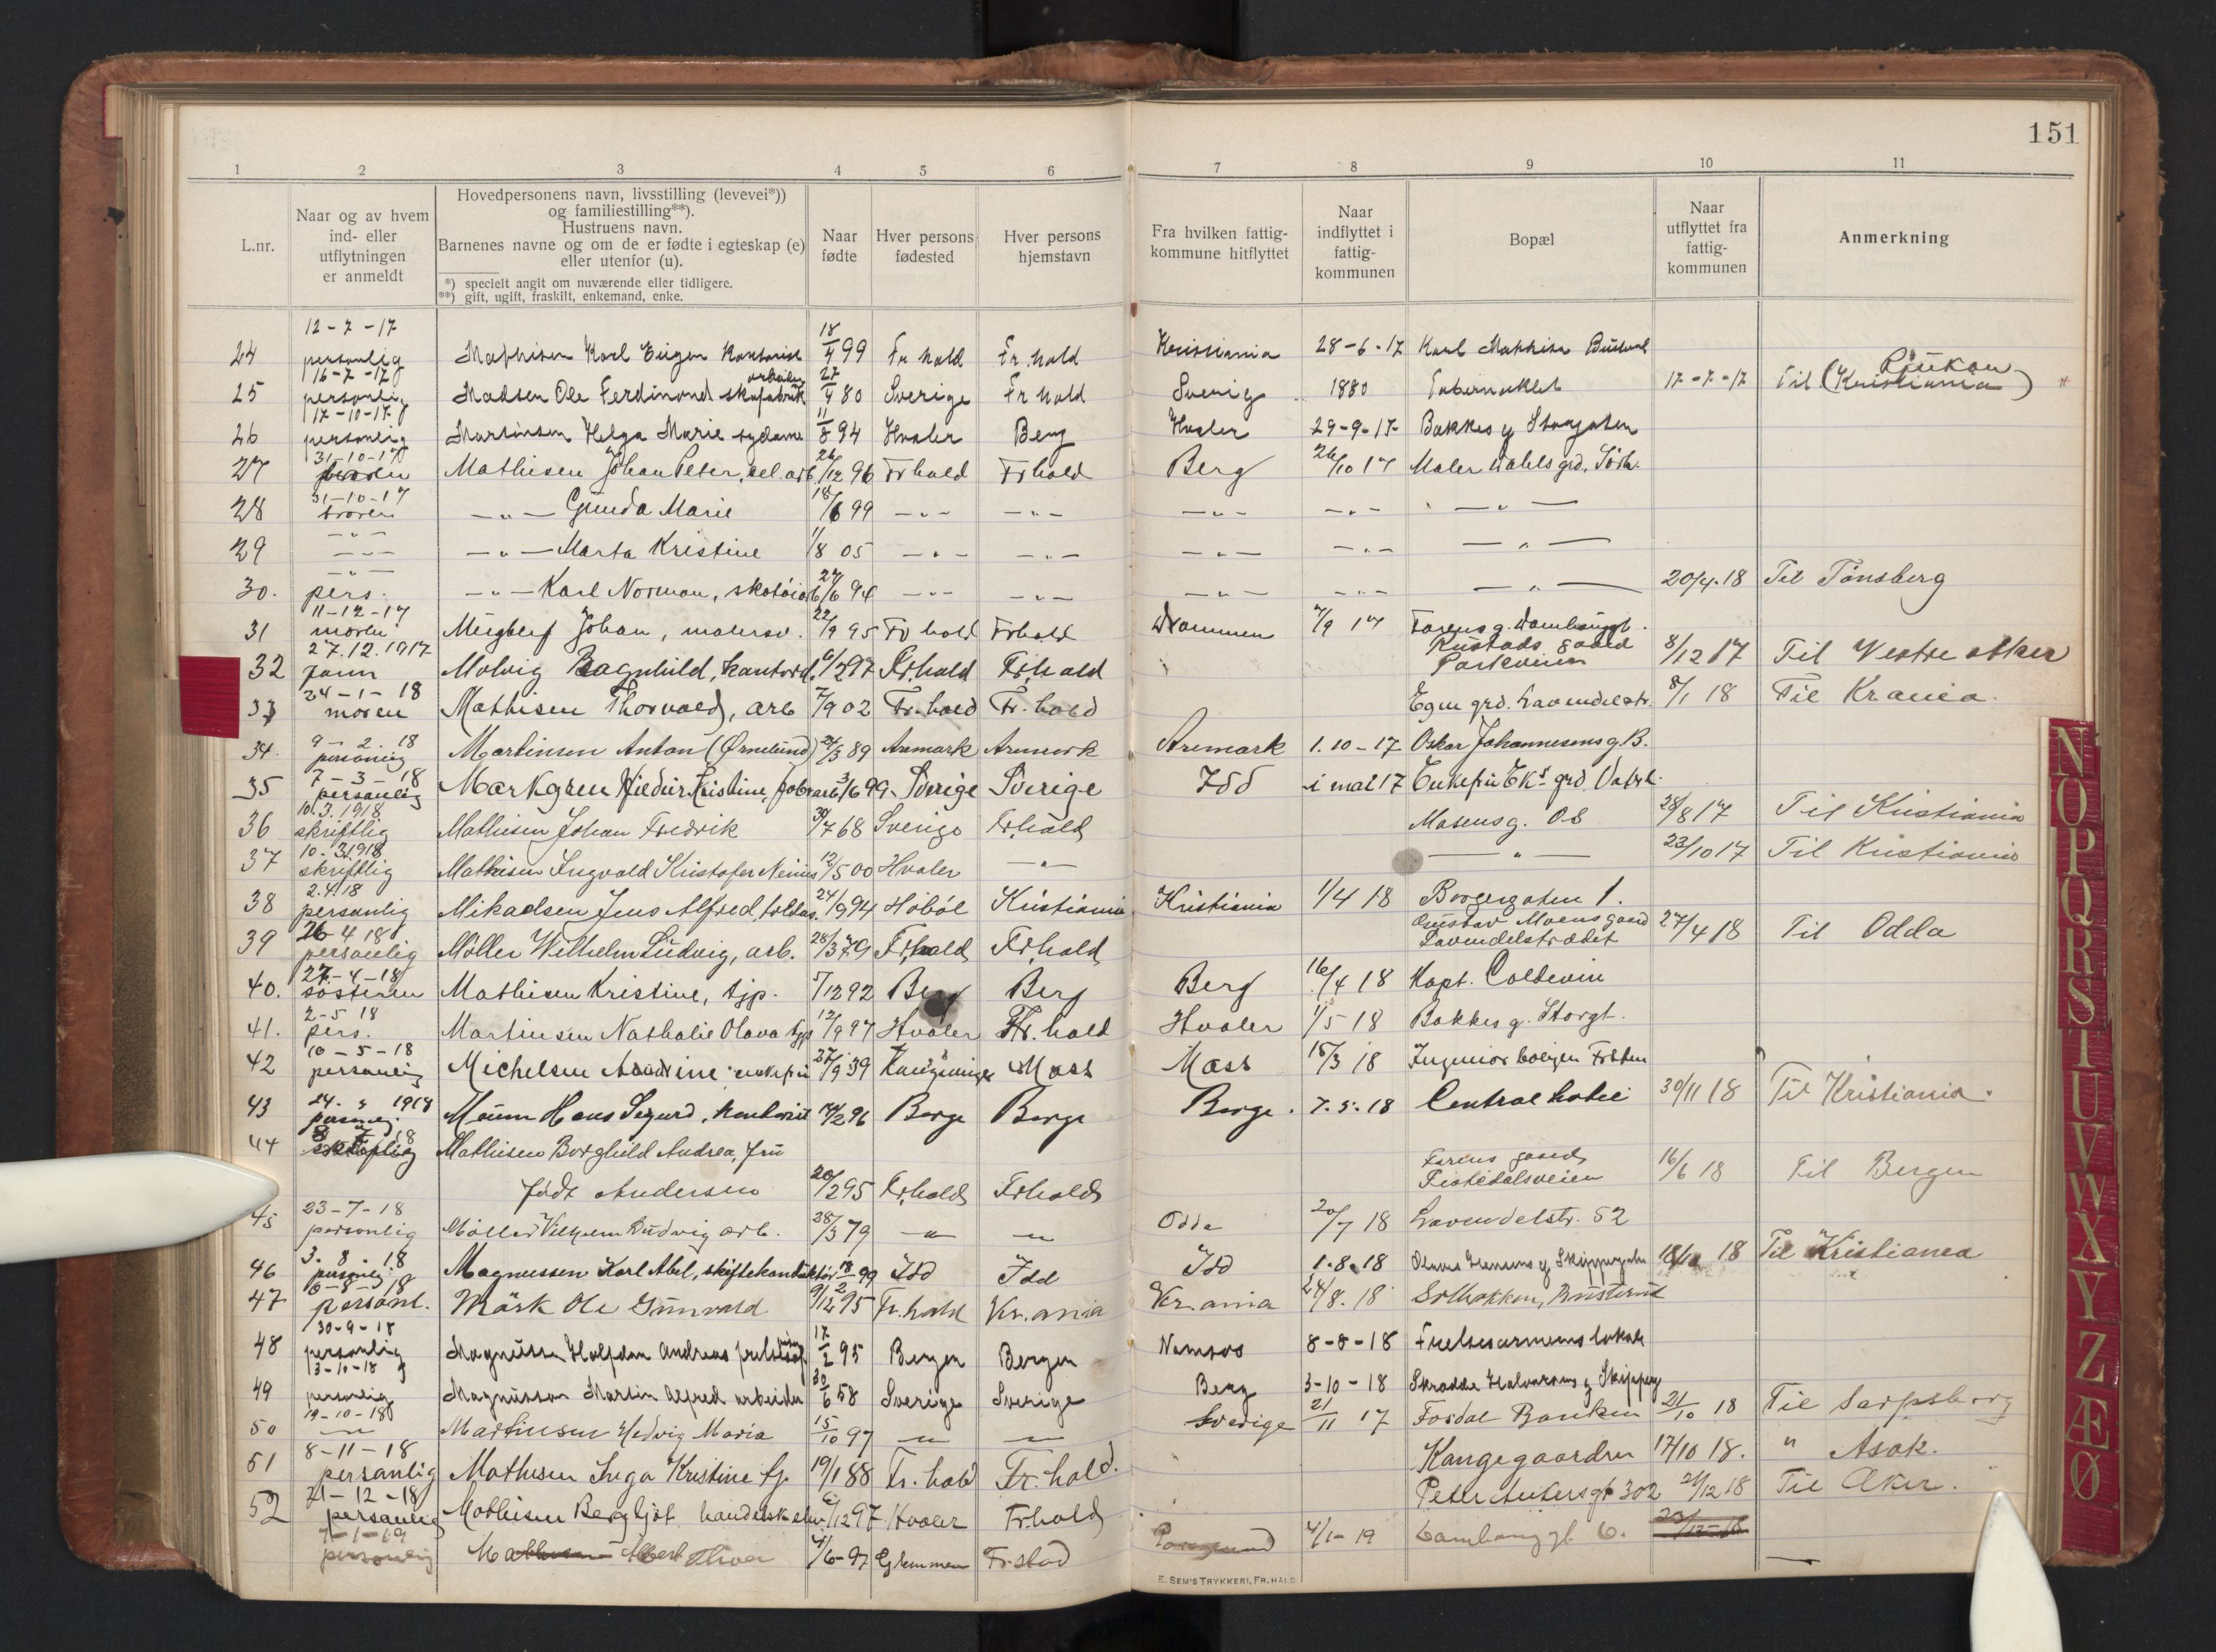 151
1 2 3 4 5 6 7 8 9 10 11
L.nr.
Naar og av hvem ind- eller utflytningen er anmeldt
Hovedpersonens navn, livsstilling (levevei*)) og familiestilling**).
Hustruens navn.
Barnenes navne og om de er fødte i egteskap (e) eller utenfor (u).
*) specielt angit om nuværende eller tidligere.
**) gift, ugift, fraskilt, enkemand, enke.
Naar fødte
Hver persons fødested
Hver persons hjemstavn
Fra hvilken fattigkommune hitflyttet
Naar indflyttet i fattigkommunen
Bopæl
Naar utflyttet fra fattigkommunen
Anmerkning
24 12-7-17 personlig Mathisen Karl Eugen Kontorist 18/4 99 Fr hald Fr. hald Kristiania 28-6-17 Karl Mathisen
25 16-7-17 personlig Madsen Ole Ferdinand skofabrik arbeider 27/4 80 Sverige Fr hald Sverig 1880 Tabernaklet 17-7-17 Til (Kristiania) Rjukan
26 17-10-17 personlig Martinsen Helga Marie sydame 11/8 94 Hvaler Berg Hvaler 29-9-17 Bakkes g Storgaten
27 31-10-17 Mathisen Johan Peter, sel. arb. 26/12 96 Frhald Frhald Berg 26/10 17 Maler Dahls grd.
28 31-10-17 broren —"— Gunda Marie 18/6 99 —"— —"— —"— —"— —"—
29 —"— —"— Marta Kristine 1/8 05 —"— —"— —"— —"— —"—
30. —"— pers. —"— Karl Norman, skotøiarb 27/6 94 —"— —"— —"— —"— —"— 20/4.18 Til Tønsberg
31 11-12-17 moren Johan, malersv. 22/9 95 Fr hald Frhald Drammen 7/9 17
32 27.12.1917 Molvig Ragnhild, kontord. 6/2 97 Fr.hald Fr.hald Rustads gaard Parkveien 8/12 17 Til Vestre Aker
33 24-1-18 moren Mathisen Thorvald, arb 7/9 02 Fr. hald Fr. hald Egen grd. Lavendelstr. 8/1 18 Til Krania.
34. 9-2.18 personlig Martinsen Anton (Ørnelund) 24/3 89 Aremark Aremark Aremark 1.10-17 Oskar Johannesens g. B.
35 7-3-18 personlig Markgren Kristine, fabr arb 3/6 99 Sverige Sverige Idd i mai 17
36 10.3.1918 skriftlig Mathisen Johan Fredrik 30/7 68 Sverige Frhald Masensg. 28/8 17 Til Kristiania
37 10.3.1918 skriftlig Mathisen Ingvald Kristofer 12/5 00 Hvaler —"— —"— 23/10 17 Til Kristiania
38 2.4.18 personlig Mikaelsen Jens Alfred, 24/9 94 Hobøl Kristiania Kristiania 1/4 18 Borgergaten 1.
39 26 4 18 personlig Möller Wilhelm Ludvig, arb. 28/3 79 Fr.hald Fr.hald Gustav Moens gaard Lavendelstrædet 27/4 18 Til Odda
40. 27-4-18 søsteren Mathisen Kristine, tjp. 5/12 92 Berg Berg Berg 16/4 18 Kapt. Coldevin
41. 2-5 18 pers. Martinsen Nathalie Olava tjp 12/9 97 Hvaler Fr. hald Hvaler 1/5 18 Bakkes g. Storgt.
42 10-5-18 personlig Michelsen enkefru 27/9 39 Kongsvinger Moss Moss 15/3 18 Ingeniør
43 24. 5 1918 Hans Sigurd, kontorist 14/2 96 Borge Borge Borge. 7.5.18 Central hotel 30/11 18 Til Kristiania.
44 skriftlig Mathisen Borghild Andrea, fru
født Andersen 20/2 95 Fr.hald Frhald gaard, Tistedalsveien 16/6 18 Til Bergen
45 23-7-18 personlig Möller Vilhelm Ludvig arb. 28/3 79 —"— —"— Odda 20/7 18 Lavendelstr. 52
46 3.8.18 personlig Magnussen Karl Abel, skiftekonduktør 18/2 99 Idd Idd Idd 1.8.18 Olaves Hansens g Skippergaten 18/10 18 Til Kristiania
47 10-8-18 personl. Mörk Ole Gunvald 9/12 95 Fr.hald Kr.ania Kr.ania 24/8.18 Solbakken,
48 30-9-18 personlig Magnussen Halfdan Andreas 17/2 95 Bergen Bergen Namsos 8-8-18 Frelsesarmeens lokale
49 13-10-18 personlig Magnusson Martin Alfred arbeider 30/6 58 Sverige Sverige Berg 3-10-18 Skrædder Halvorsens g Skipperg
50 19-10-18 —"— Martinsen Hedvig Maria 15/10 97 —"— —"— Sverige 21/11 17 Fosdal Banken 21/10 18 Til Sarpsborg
51 8-11-18 personlig Mathisen Inga Kristine tj. 19/1 88 Fr. hald Fr. hald. Kangegaarden 17/10 18. " Asak.
52 21-12-18 personlig Mathisen Bergljot handelsk elev 6/12 97 Hvaler Frhald Peder Ankersgt 302 21/12 18 Til Aker.
7-1-19 personlig Mathisen Albert Thor 4/6-97 Glemmen Fr.stad Porsgrund 4/1-19 Damhauggt 6. 23/12-18
E. SEM'S TRYKKERI, FR.HALD
N
O
P
Q
R
S
T
U
V
W
X
Y
Z
Æ
Ø